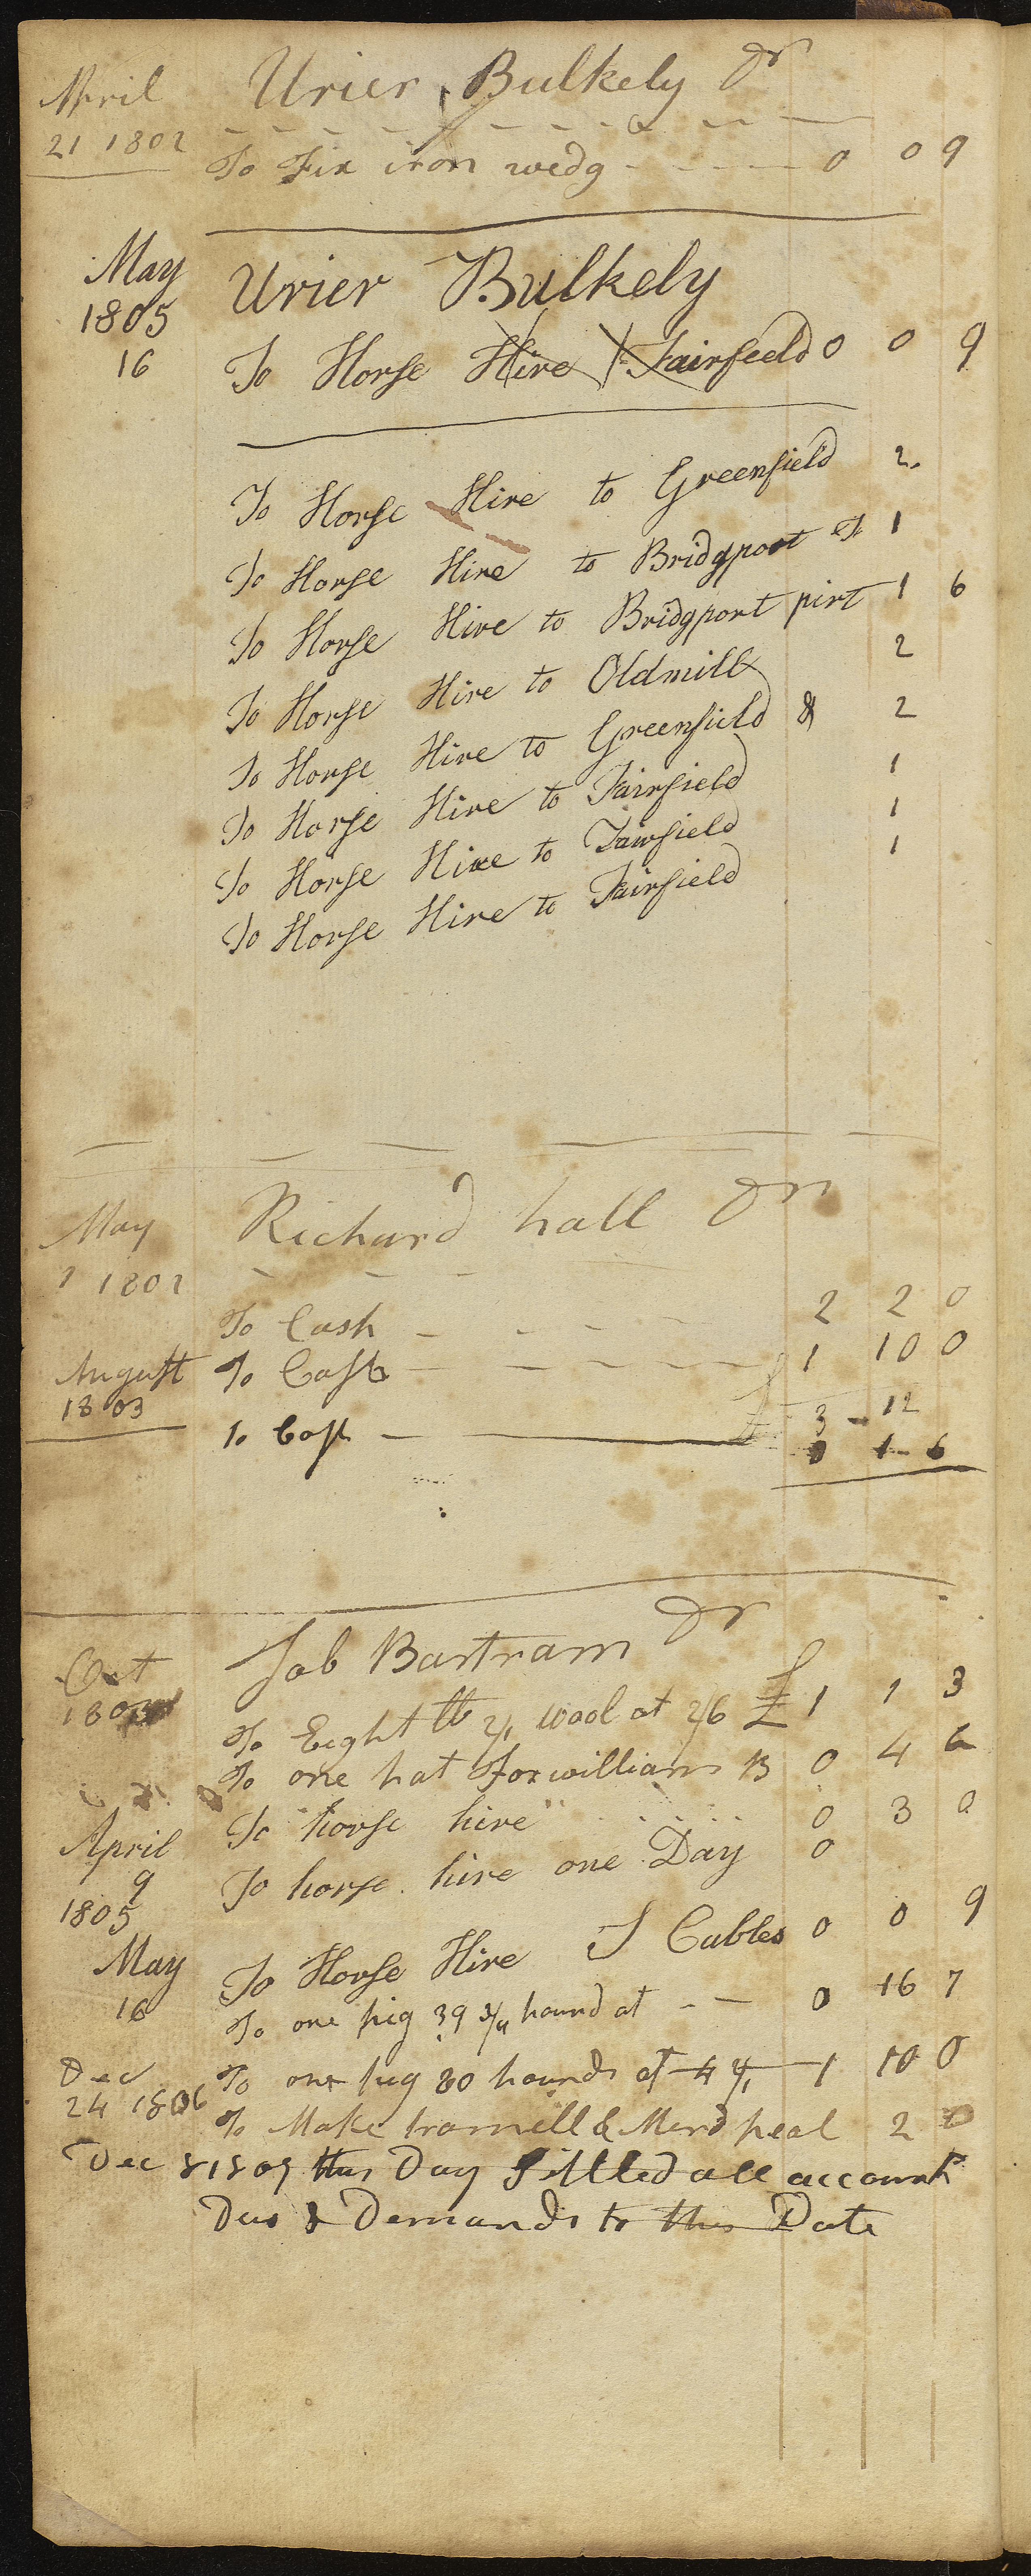 April Urier Bulkely Dr
21 1802
To Fix iron wedg 0 0 9
May Urier Bulkely
1805
16 To Horse Hire Fairfield 0 0 9
To Horse Hire to Greenfield 2
To Horse Hire to Bridgport 1
To Horse Hire to Bridgport pirt 1 6
To Horse Hire to Oldmill 2
To Horse Hire to Greenfield & 2
To Horse Hire to Fairfield 1
To Horse Hire to Fairfield 1
To Horse Hire to Fairfield 1
May Richard hall Dr
1 1802
To Cash 2 2 0
August To Cash 1 10 0
1803
£ 3 - 12
To Cash 0 1 - 6
Oct Job Bartram Dr
1803
To Eight lb wool at 2/6 £ 1 1 3
To one hat For william B 0 4 6
To horse hire 0 3 0
April To horse hire one Day 0
9
1805
May To Horse Hire J Cables 0 0 9
16 To one pig 39 3/4 pound at 0 16 7
Dec To one pig 80 pounds at 1 10 0
24 1806
To Make tramell & Mend peal 2 0
Dec 8 1809 this Day Sittled all accounts
Dus & Demands to this Date